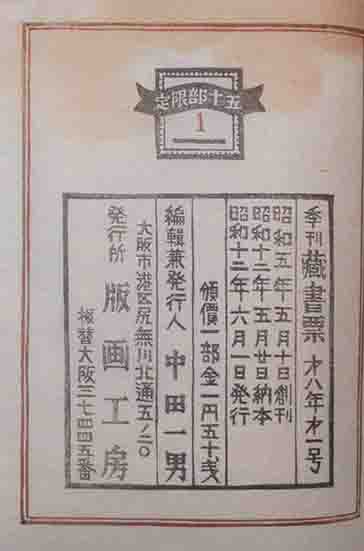 五十部限定
1
季刊 藏書票 才八年才一号
昭和五年五月十日創刊
昭和十二年五月廿日納本
昭和十二年六月一日発行
頒價一部金一円五十戋
編輯兼発行人 中田一男
大阪市港区尻無川北通五ノ二〇
発行所 版画工房
振替大阪三七四四五番